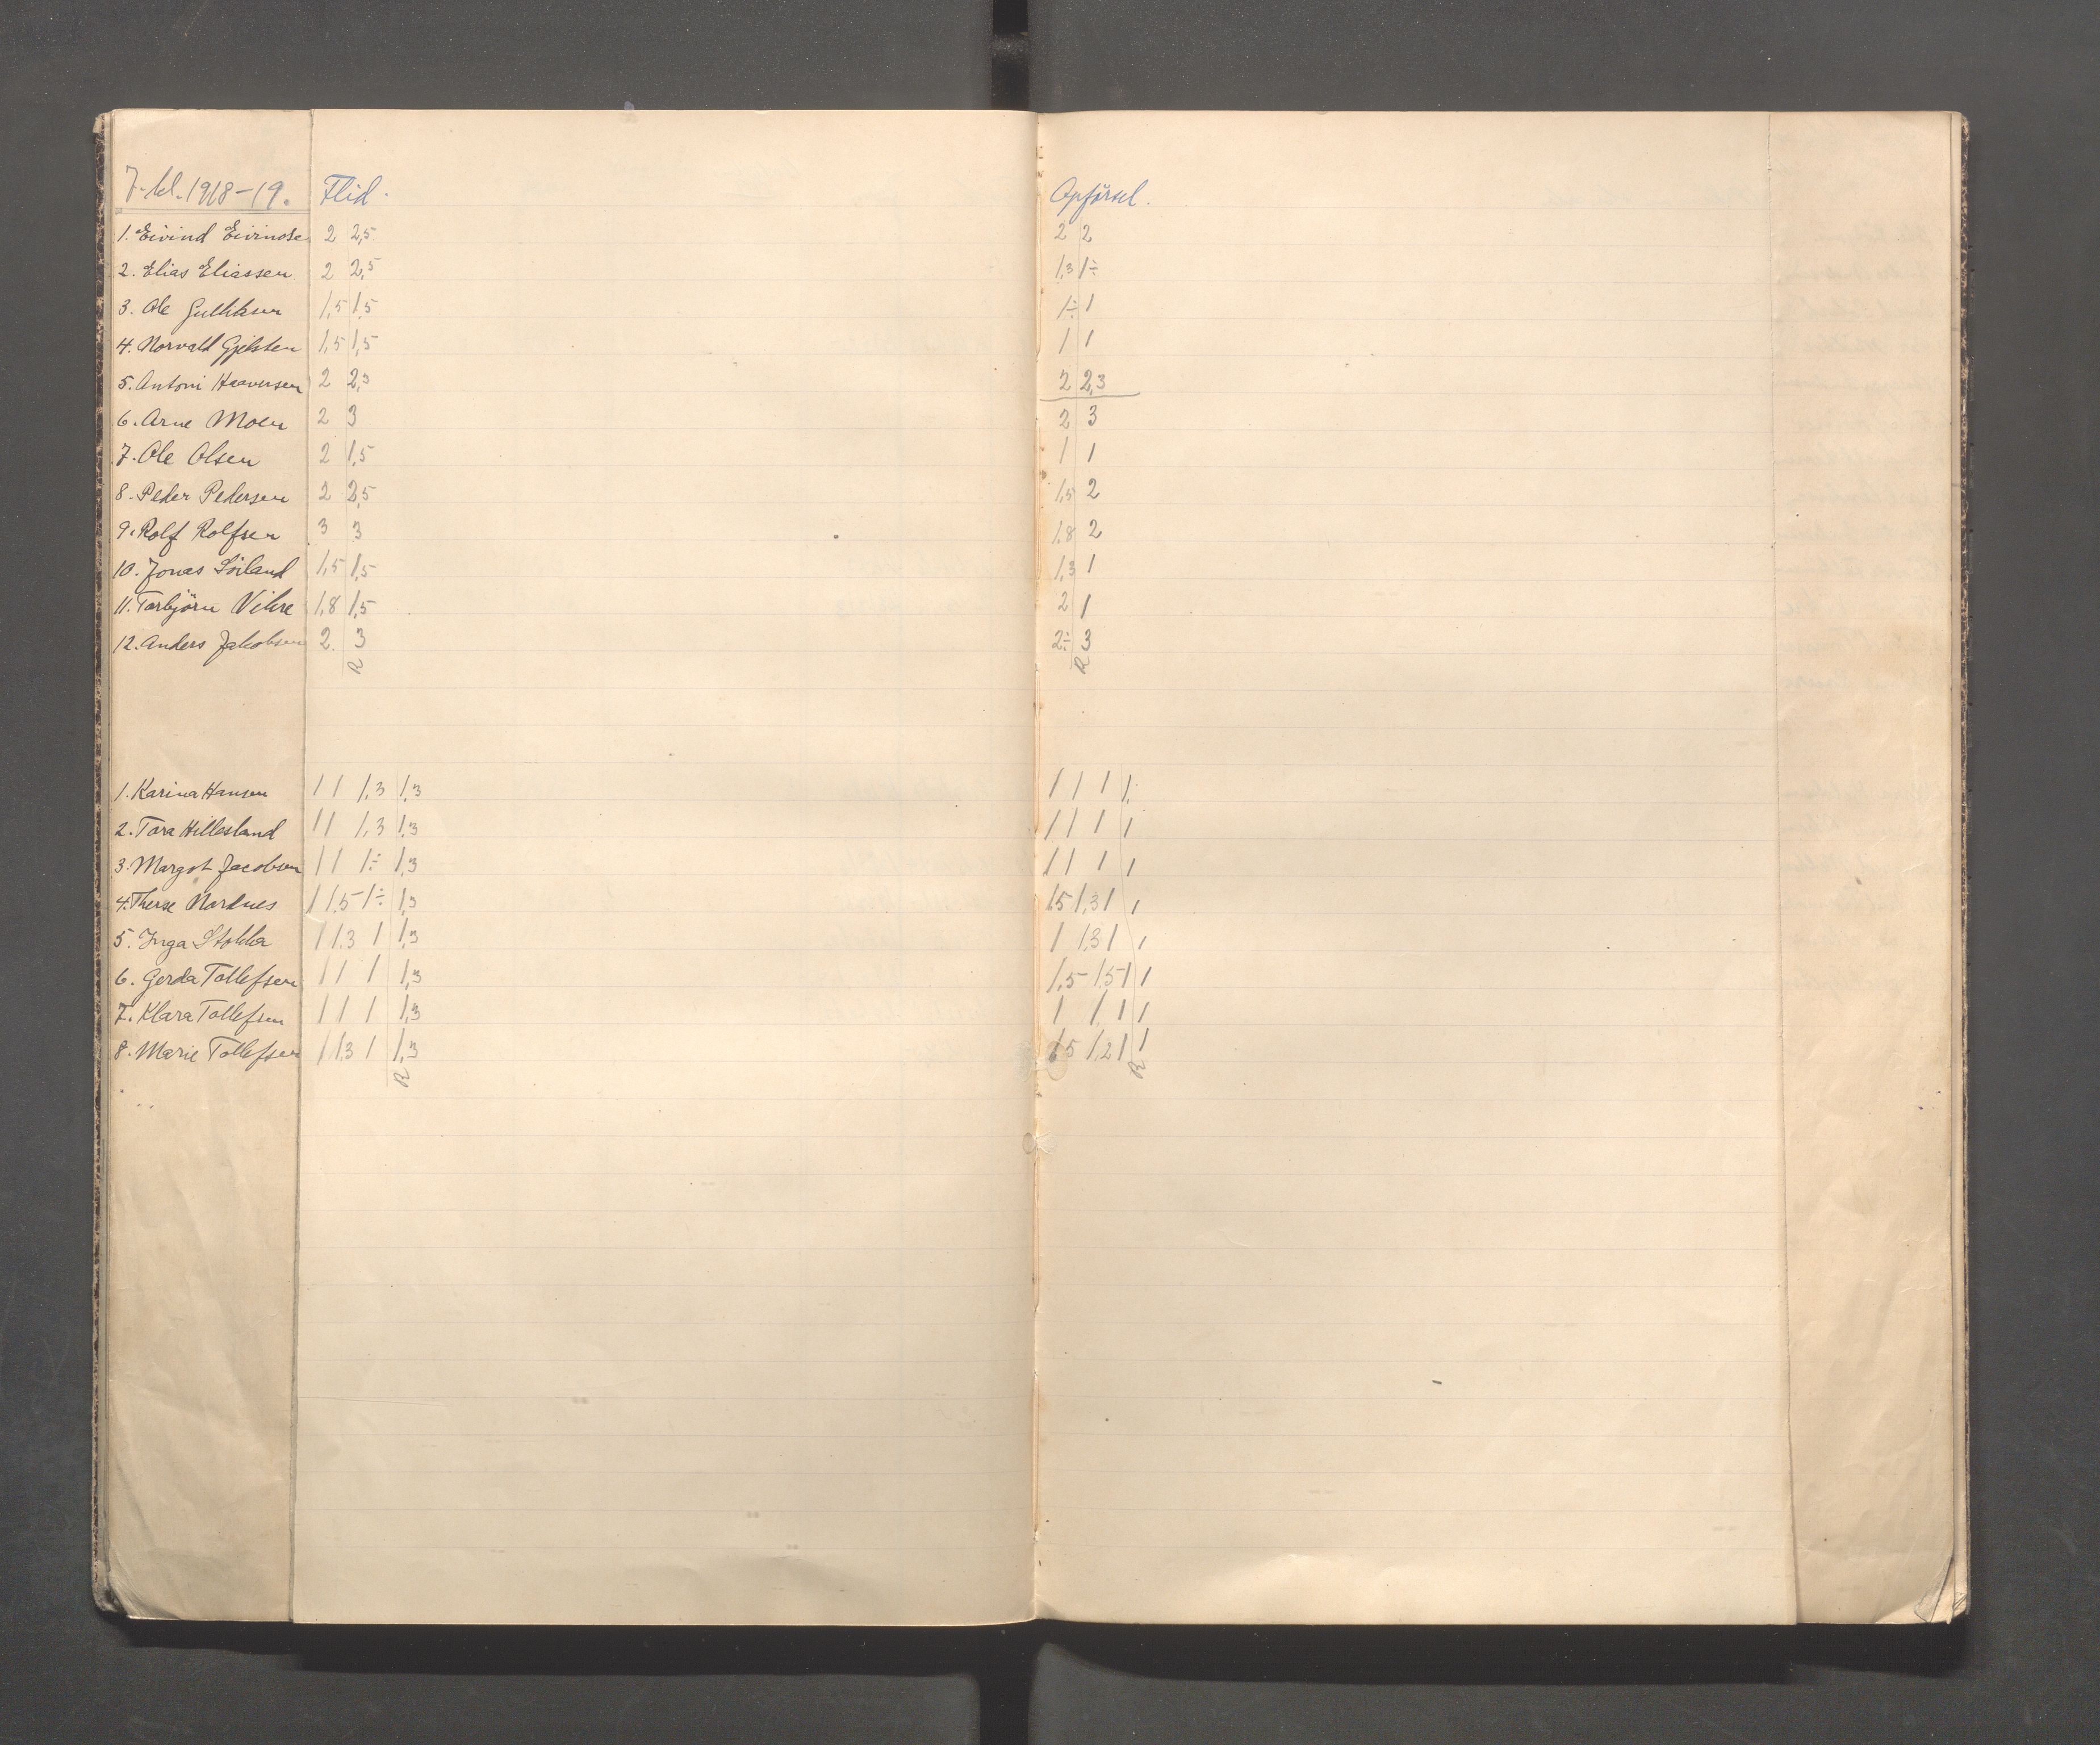 7. kl. 1918-19. Flid.
1. Eivind Eivindse 2 2,5
2. Elias Eliassen 2 2,5
3. Ole Gulliksen 1,5 1,5
4. Norvald Gjelsten 1,5 1,5
5. Antoni Haaversen 2 2,3
6. Arne Moen 2 3
7. Ole Olsen 2 1,5
8. Peder Pedersen 2 2,5
9. Rolf Rolfsen 3 3
10. Jonas Söiland 1,5 1,5
11. Torbjörn Vikse 1,8 1,5
12. Anders Jakobsen 2. 3
R
1. Karina Hansen 1 1 1,3 1,3
2. Tora Hillesland 1 1 1,3 1,3
3. Margot Jacobsen 1 1 1÷ 1,3
4. Therse Nordnes 1 1,5 1÷ 1,3
5. Inga Stokka 1 1,3 1 1,3
6. Gerda Tollefsen 1 1 1 1,3
7. Klara Tollefsen 1 1 1 1,3
8. Marie Tollefsen 1 1,3 1 1,3
R
Opförsel.
2 2
1,3 1÷
1÷ 1
1 1
2 2,3
2 3
1 1
1,5 2
1,8 2
1,3 1
2 1
2÷ 3
R
1 1 1 1
1 1 1 1
1 1 1 1
1,5 1,3 1 1
1 1,3 1 1
1,5 1,5 1 1
1 1 1 1
1,5 1,2 1 1
R